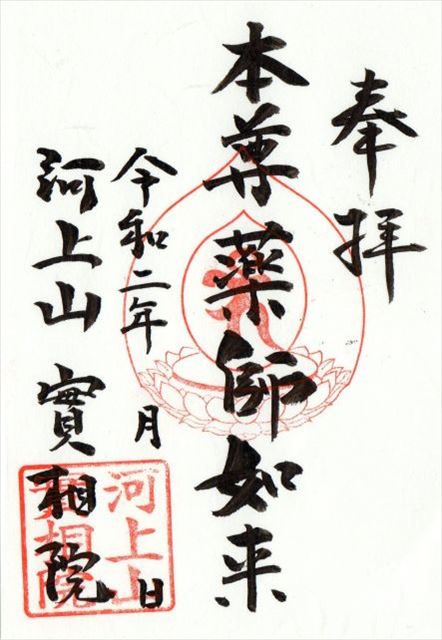 奉拝
本尊薬師如来
令和二年 月 日
河上山 實相院
河上山
實相院